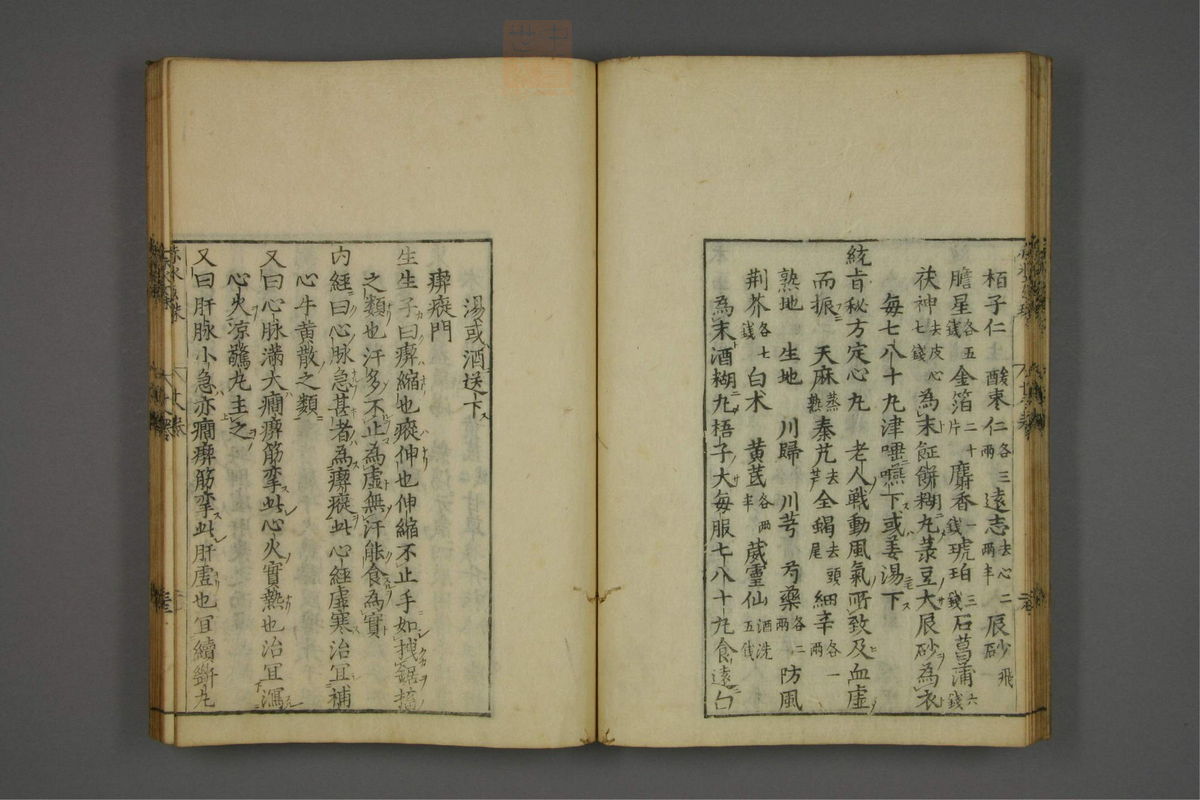 栢子仁 酸棗仁各三兩 遠志去心二兩半 辰砂飛
膽星各五錢 金箔二十片 麝香一錢 琥珀三錢 石菖蒲六錢
茯神去皮心七錢 為末 飩餅糊丸菉豆大辰砂為衣
每七八十丸津唾嚥下或姜湯下
統旨秘方定心丸 老人戰動風氣所致及血虛
而振 天麻蒸熟 秦艽去芦 全蝎去頭尾 細辛各一兩
熟地 生地 川歸 川芎 芍藥各二兩 防風
荆芥各七錢 白术 黃茋各兩半 葳靈仙酒洗五錢
為末酒糊丸梧子大每服七八十丸食遠白
湯或酒送下
瘈瘲門
生生子曰瘈縮也瘲伸也伸縮不止手如拽鋸搐
之類也汗多不止為虛無汗能食為實
内經曰心脉急甚者為瘈瘲此心經虛寒治宜補
心牛黃散之類
又曰心脉滿大癎瘈筋攣此心火實熱也治宜瀉
心火涼驚丸主之
又曰肝脉小急亦癎瘈筋攣此肝虛也宜續斷丸
赤水玄珠